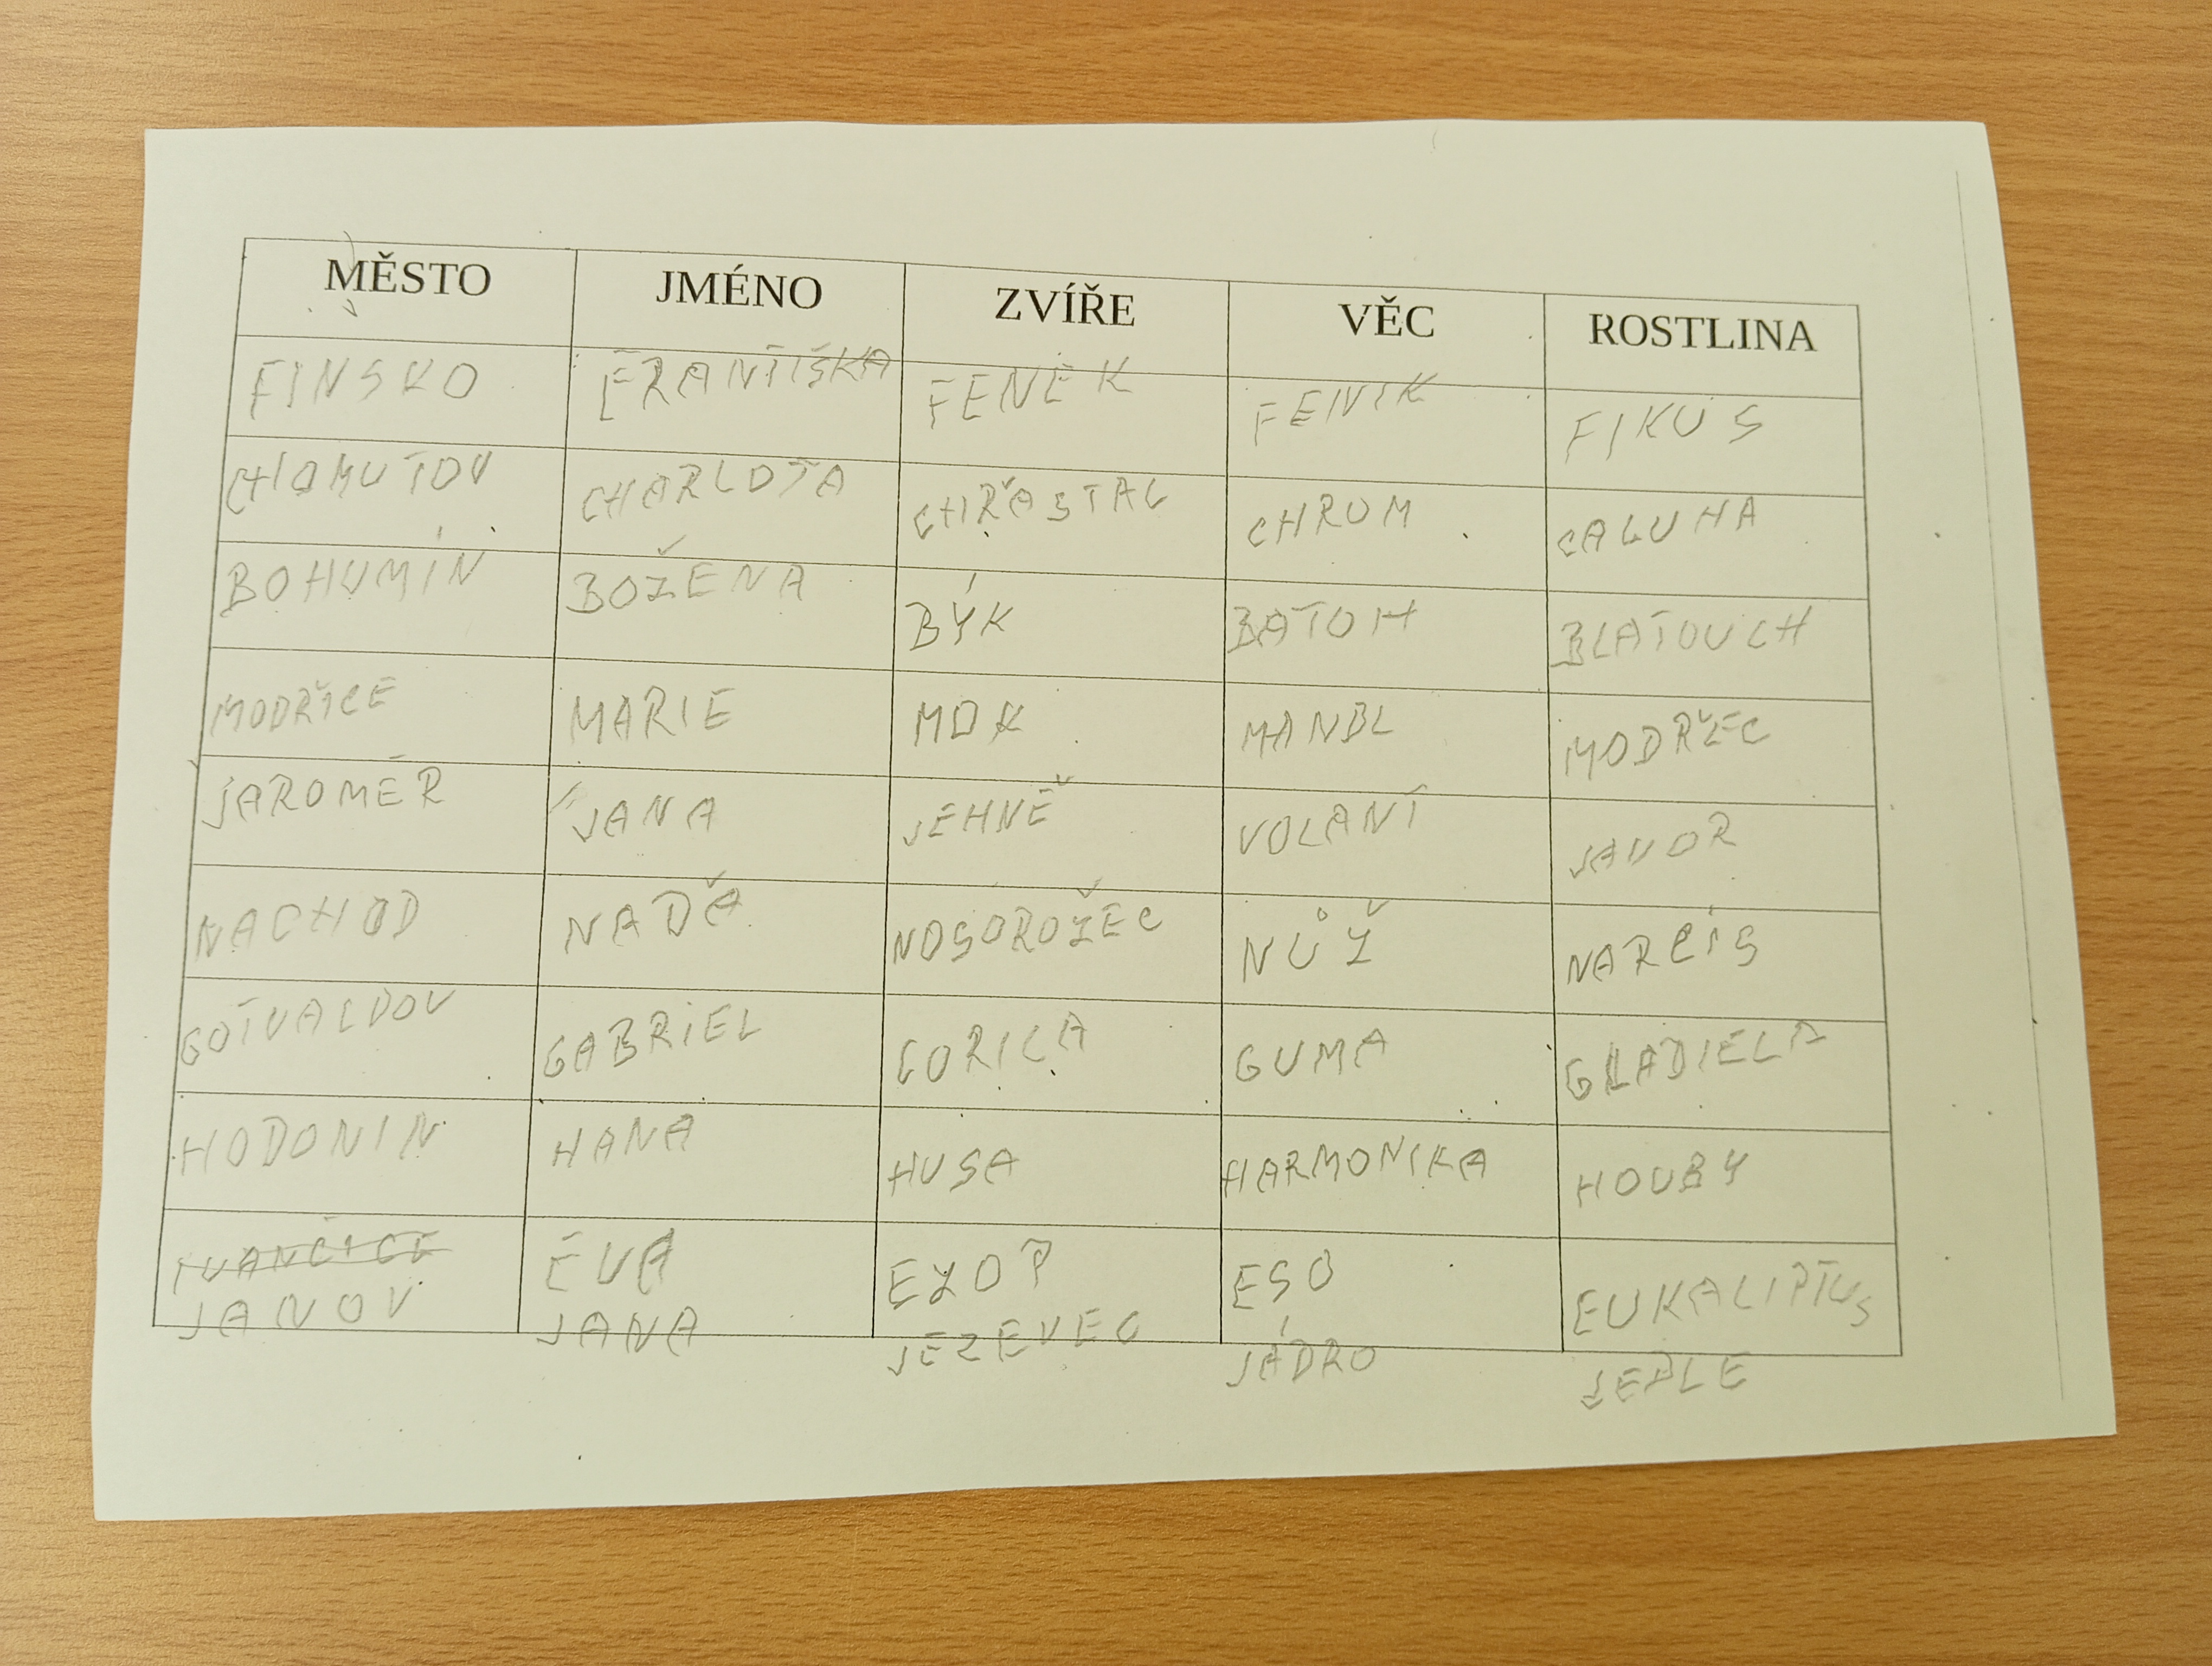 MĚSTO JMÉNO ZVÍŘE VĚC ROSTLINA
FINSKO FRANTIŠKA FENEK FENIK FIKUS
CHOMUTOV CHARLOTA CHŘASTAL CHROM CALUNA
BOHUMÍN BOŽENA BÝK BATOH BLATOUCH
MODŘICE MARIE MOK MANDL MODŘEC
JAROMĚR JANA JEHNĚ VOLANT JAVOR
NACHOD NAĎA NOSOROŽEC NŮŽ NARCÍS
GOTVALDOV GABRIEL GORILA GUMA GLADIELA
HODONIN HANA HUSA HARMONIKA HOUBY
IVANČICE EVA EZOP ESO EUKALIPTUS
JANOV JANA JEZEVEC JÁDRO JEDLE